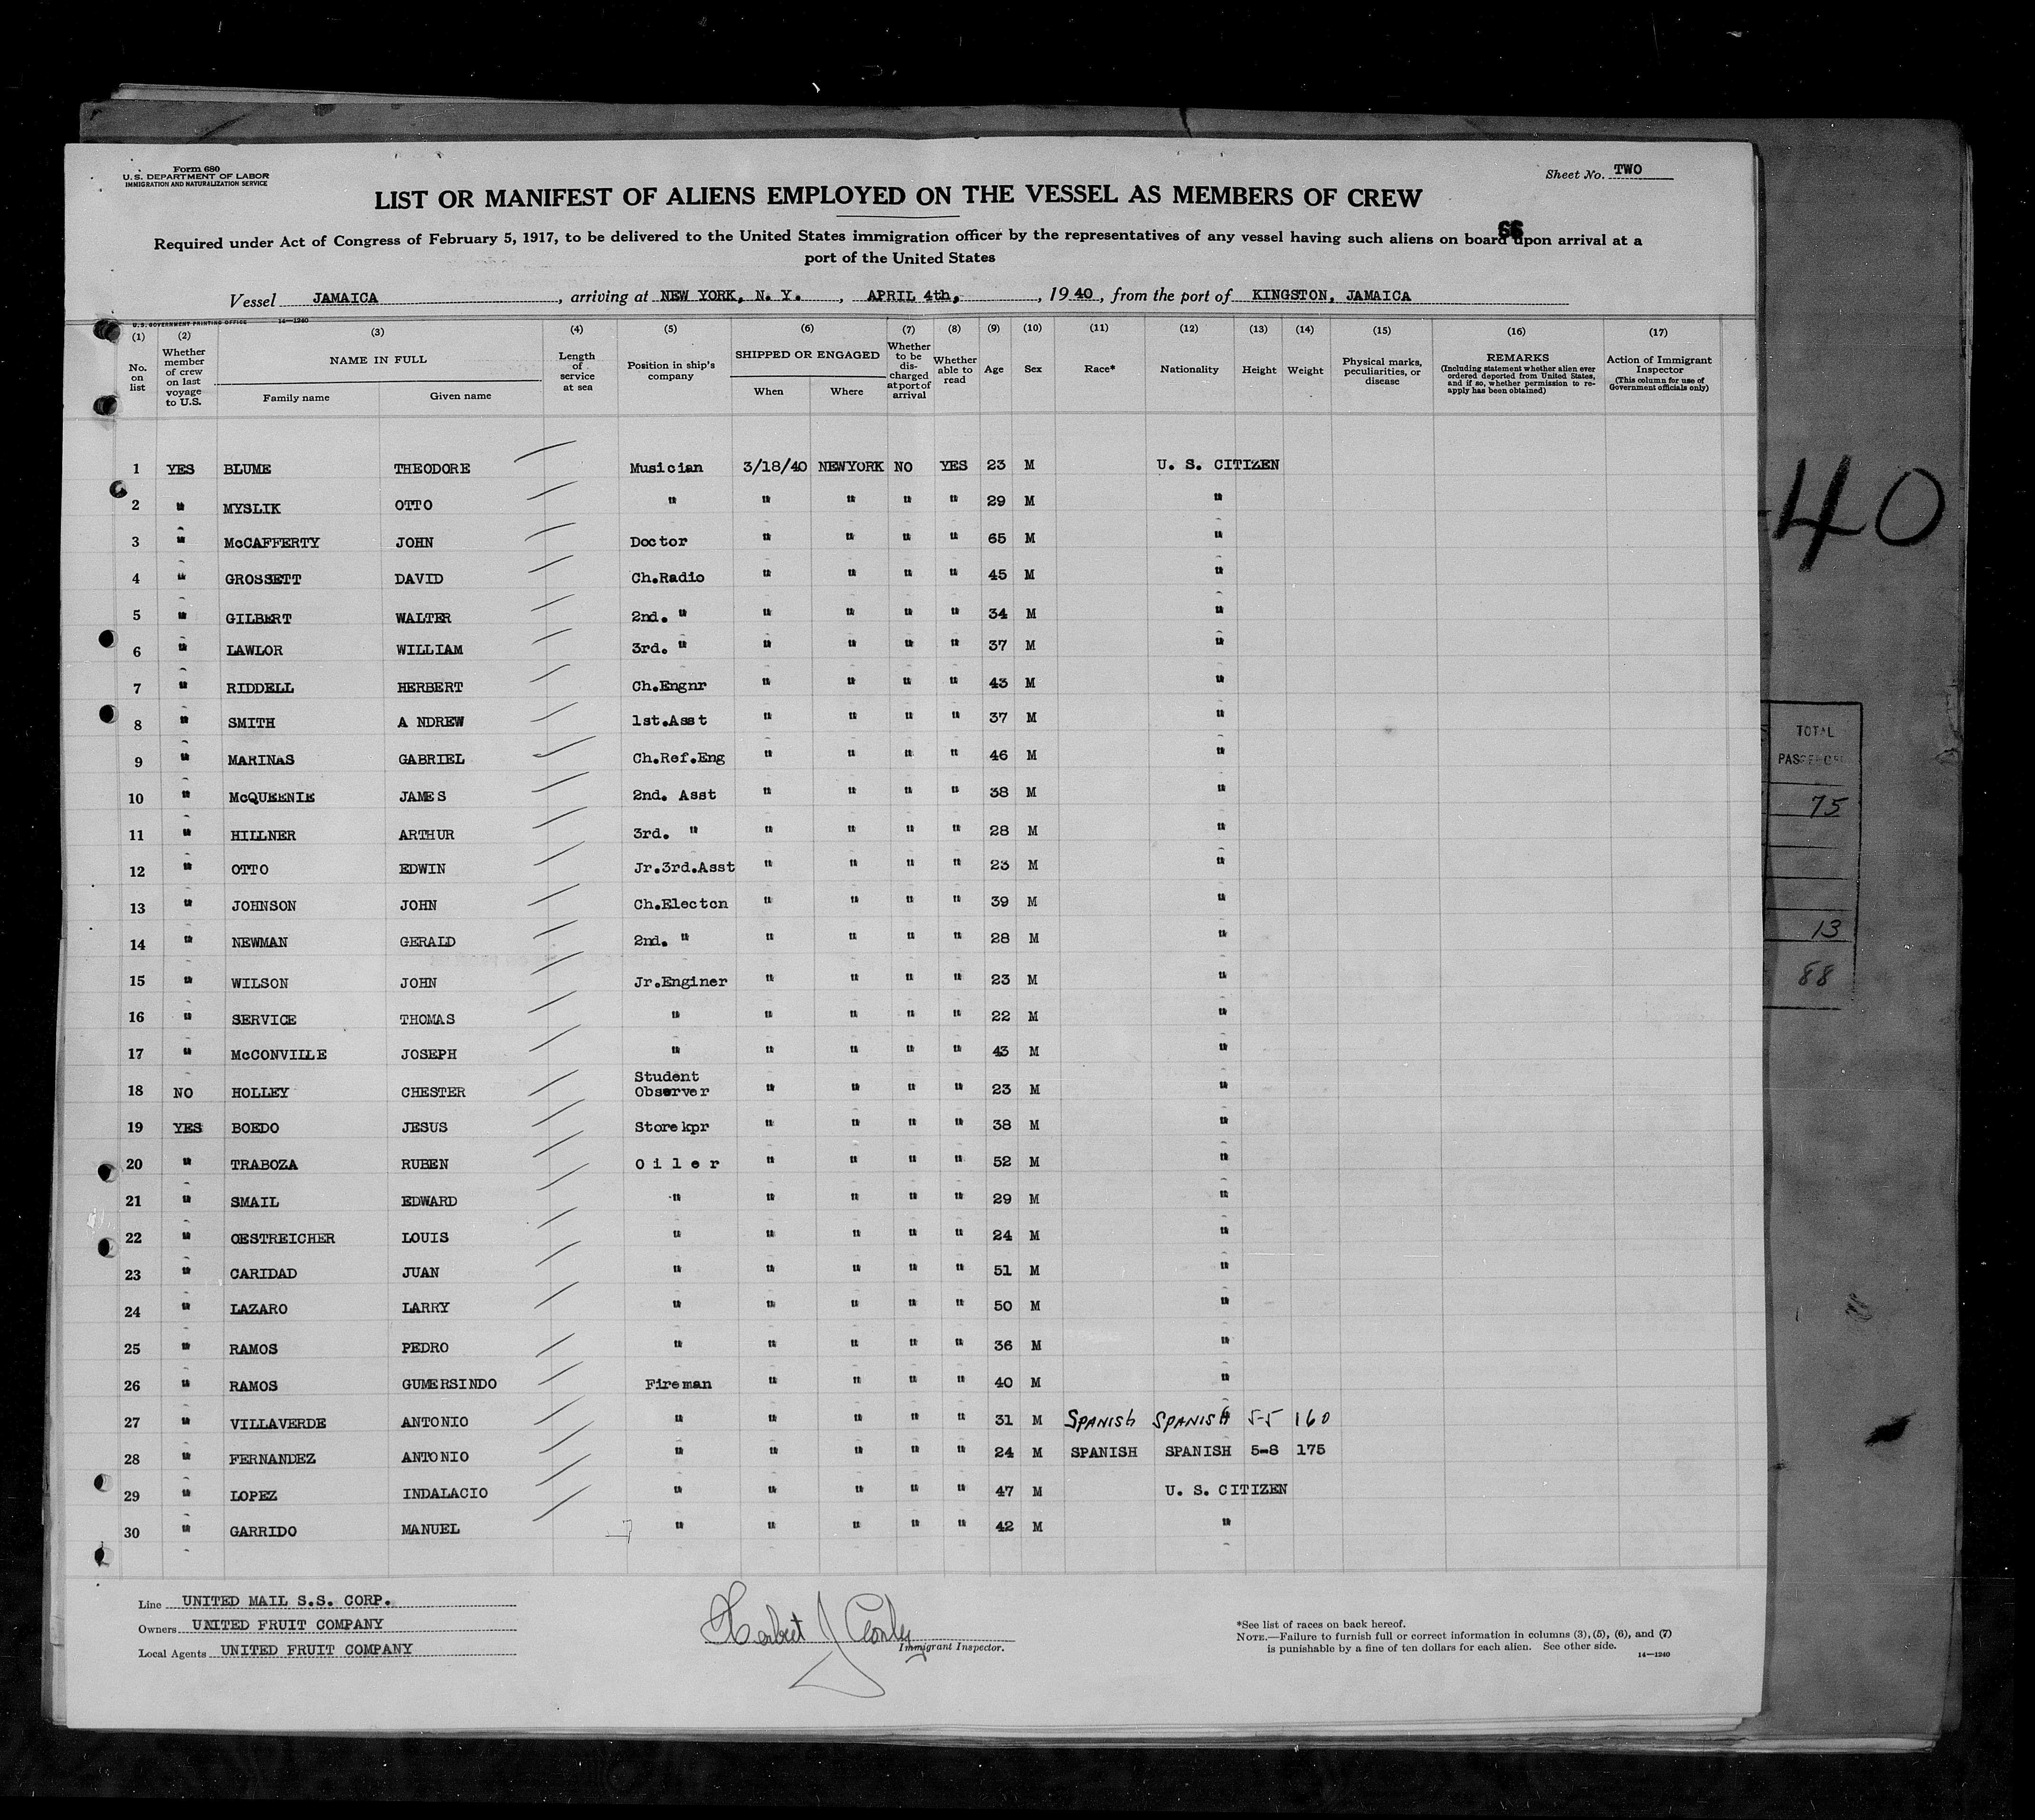 Form 680
U. S. DEPARTMENT OF LABOR
IMMIGRATION AND NATURALIZATION SERVICE
Sheet No. TWO
LIST OR MANIFEST OF ALIENS EMPLOYED ON THE VESSEL AS MEMBERS OF CREW
66
Required under Act of Congress of February 5, 1917, to be delivered to the United States immigration officer by the representatives of any vessel having such aliens on board upon arrival at a
port of the United States
Vessel JAMAICA, arriving at NEW YORK, N. Y., APRIL 4th, 1940, from the port of KINGSTON, JAMAICA
U. S. GOVERNMENT PRINTING OFFICE 14—1240
(1) (2) (3) (4) (5) (6) (7) (8) (9) (10) (11) (12) (13) (14) (15) (16) (17)
No. on list
Whether member of crew on last voyage to U.S.
NAME IN FULL
Family name Given name
Length of service at sea
Position in ship's company
SHIPPED OR ENGAGED
When Where
Whether to be discharged at port of arrival
Whether able to read
Age Sex Race* Nationality Height Weight
Physical marks, peculiarities, or disease
REMARKS
(Including statement whether alien ever ordered deported from United States, and if so, whether permission to reapply has been obtained)
Action of Immigrant Inspector
(This column for use of Government officials only)
1 YES BLUME THEODORE Musician 3/18/40 NEWYORK NO YES 23 M U. S. CITIZEN
2 " MYSLIK OTTO " " " " " 29 M "
3 " McCAFFERTY JOHN Doctor " " " " 65 M "
4 " GROSSETT DAVID Ch.Radio " " " " 45 M "
5 " GILBERT WALTER 2nd. " " " " " 34 M "
6 " LAWLOR WILLIAM 3rd. " " " " " 37 M "
7 " RIDDELL HERBERT Ch.Engnr " " " " 43 M "
8 " SMITH A NDREW 1st.Asst " " " " 37 M "
9 " MARINAS GABRIEL Ch.Ref.Eng " " " " 46 M "
10 " McQUEENIE JAMES 2nd. Asst " " " " 38 M "
11 " HILLNER ARTHUR 3rd. " " " " " 28 M "
12 " OTTO EDWIN Jr.3rd.Asst " " " " 23 M "
13 " JOHNSON JOHN Ch.Electcn " " " " 39 M "
14 " NEWMAN GERALD 2nd. " " " " " 28 M "
15 " WILSON JOHN Jr.Enginer " " " " 23 M "
16 " SERVICE THOMAS " " " " " 22 M "
17 " McCONVILLE JOSEPH " " " " " 43 M "
18 NO HOLLEY CHESTER Student Observer " " " " 23 M "
19 YES BOEDO JESUS Storekpr " " " " 38 M "
20 " TRABOZA RUBEN O i l e r " " " " 52 M "
21 " SMAIL EDWARD " " " " " 29 M "
22 " OESTREICHER LOUIS " " " " " 24 M "
23 " CARIDAD JUAN " " " " " 51 M "
24 " LAZARO LARRY " " " " " 50 M "
25 " RAMOS PEDRO " " " " " 36 M "
26 " RAMOS GUMERSINDO Fireman " " " " 40 M "
27 " VILLAVERDE ANTONIO " " " " " 31 M SPANISH SPANISH 5-5 160
28 " FERNANDEZ ANTONIO " " " " " 24 M SPANISH SPANISH 5-8 175
29 " LOPEZ INDALACIO " " " " " 47 M U. S. CITIZEN
30 " GARRIDO MANUEL " " " " " 42 M "
Line UNITED MAIL S.S. CORP.
Owners UNITED FRUIT COMPANY
Local Agents UNITED FRUIT COMPANY
Herbert J
Immigrant Inspector.
*See list of races on back hereof.
NOTE.—Failure to furnish full or correct information in columns (3), (5), (6), and (7)
is punishable by a fine of ten dollars for each alien. See other side.
14—1240
40
TOTAL
75
13
88